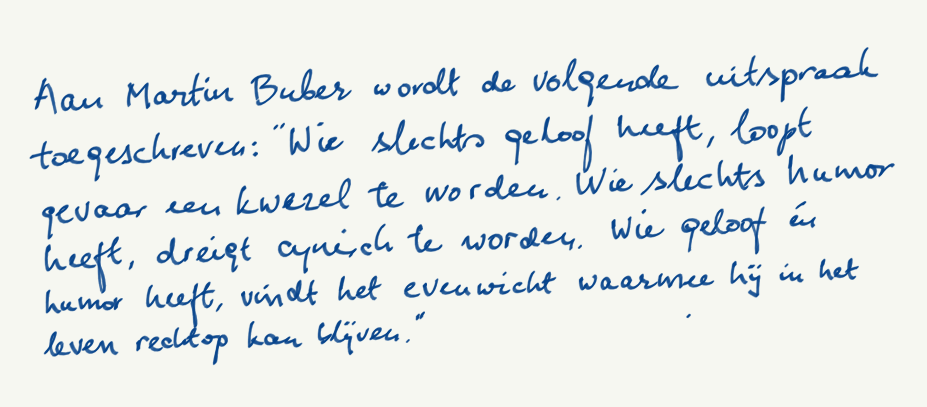 Aan Martin Buber wordt de volgende uitspraak
toegeschreven: "Wie slechts geloof heeft, loopt
gevaar een kwezel te worden. Wie slechts humor
heeft, dreigt cynisch te worden. Wie geloof én
humor heeft, vindt het evenwicht waarmee hij in het
leven rechtop kan blijven."